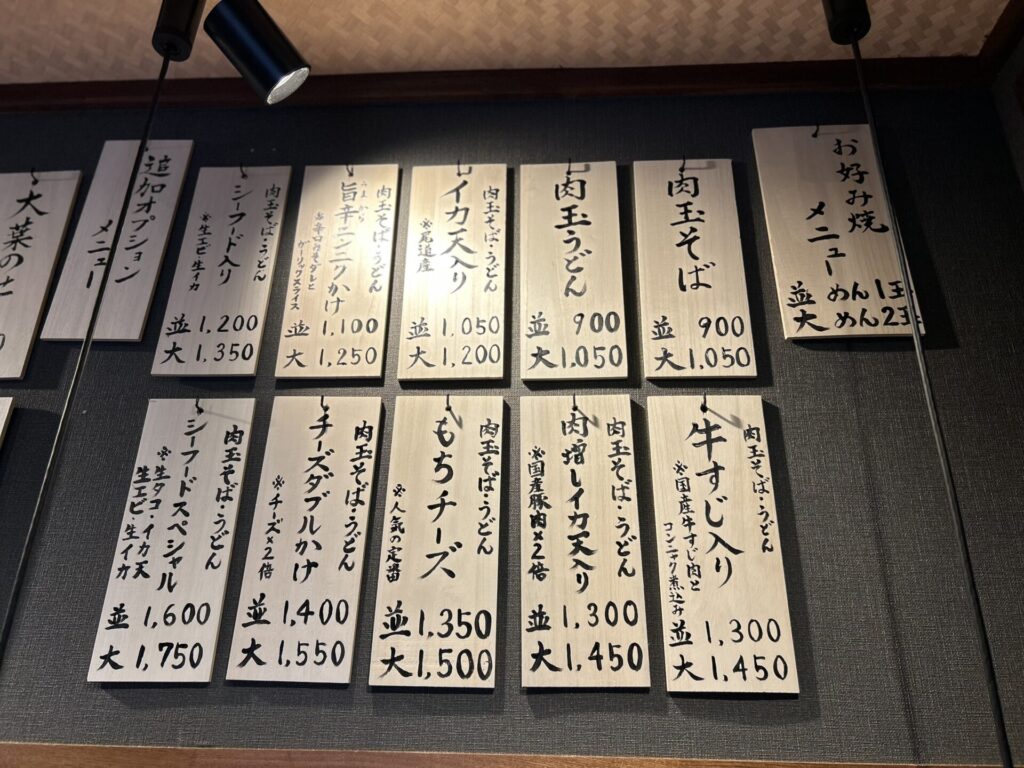 お好み焼
メニュー
並 めん1玉
大 めん2玉
肉玉そば
並 900
大 1,050
肉玉うどん
並 900
大 1,050
肉玉そば・うどん
イカ天入り
※尾道産
並 1,050
大 1,200
肉玉そば・うどん
うま から
旨辛ニンニクかけ
※辛口みそダレと
ガーリックスライス
並 1,100
大 1,250
肉玉そば・うどん
シーフード入り
※生エビ・生イカ
並 1,200
大 1,350
追加オプション
メニュー
大葉の
肉玉そば・うどん
牛すじ入り
※国産牛すじ肉と
コンニャク煮込み
並 1,300
大 1,450
肉玉そば・うどん
肉増しイカ天入り
※国産豚肉×2倍
並 1,300
大 1,450
肉玉そば・うどん
もちチーズ
※人気の定番
並 1,350
大 1,500
肉玉そば・うどん
チーズダブルかけ
※チーズ×2倍
並 1,400
大 1,550
肉玉そば・うどん
シーフードスペシャル
※生タコ・イカ天
生エビ・生イカ
並 1,600
大 1,750